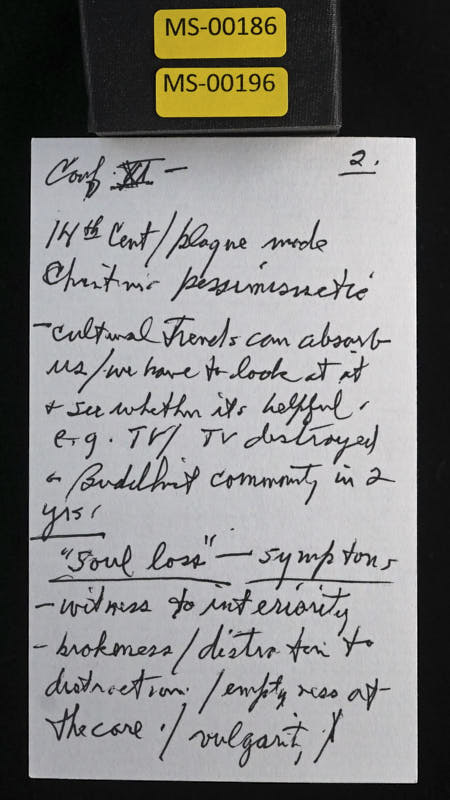 MS-00186
MS-00196
Conf. XI — 2.
14th Cent/plague made
Christians pessimisnstic
- cultural trends can absorb
us/we have to look at it
+ see whether it's helpful,
e.g. TV/ TV destroyed
a Buddhist community in 2
yrs.
"Soul loss" — symptons
- witness to interiority
- brokeness/distraction to
distraction./emptyness at
the core ./ vulgarity/